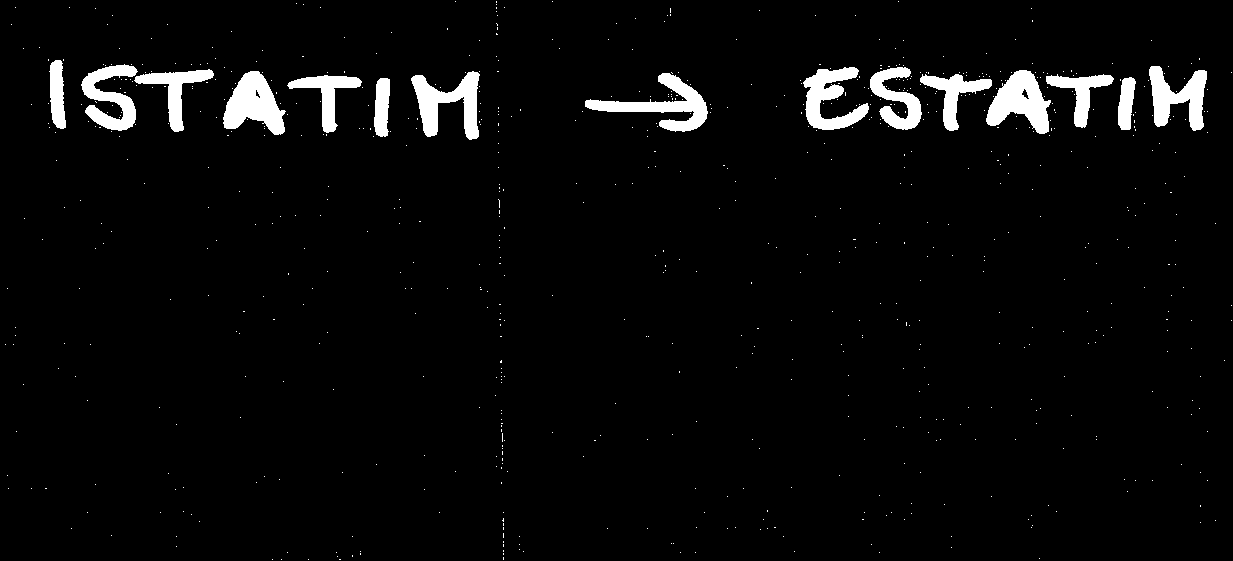 ISTATIM → ESTATIM